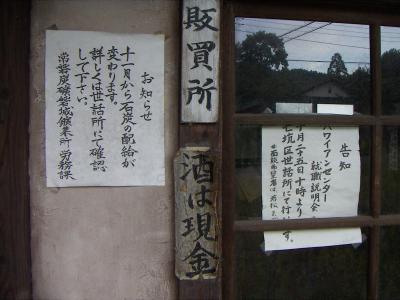 お知らせ
十一月から石炭の配給が
変わります。
詳しくは世話所にて確認
して下さい。
常磐炭礦磐城鉱業所 労務課
販買所
酒は現金
告知
ハワイアンセンター
就職説明会
十月二十五日十時より
七坑区世話所にて行います。